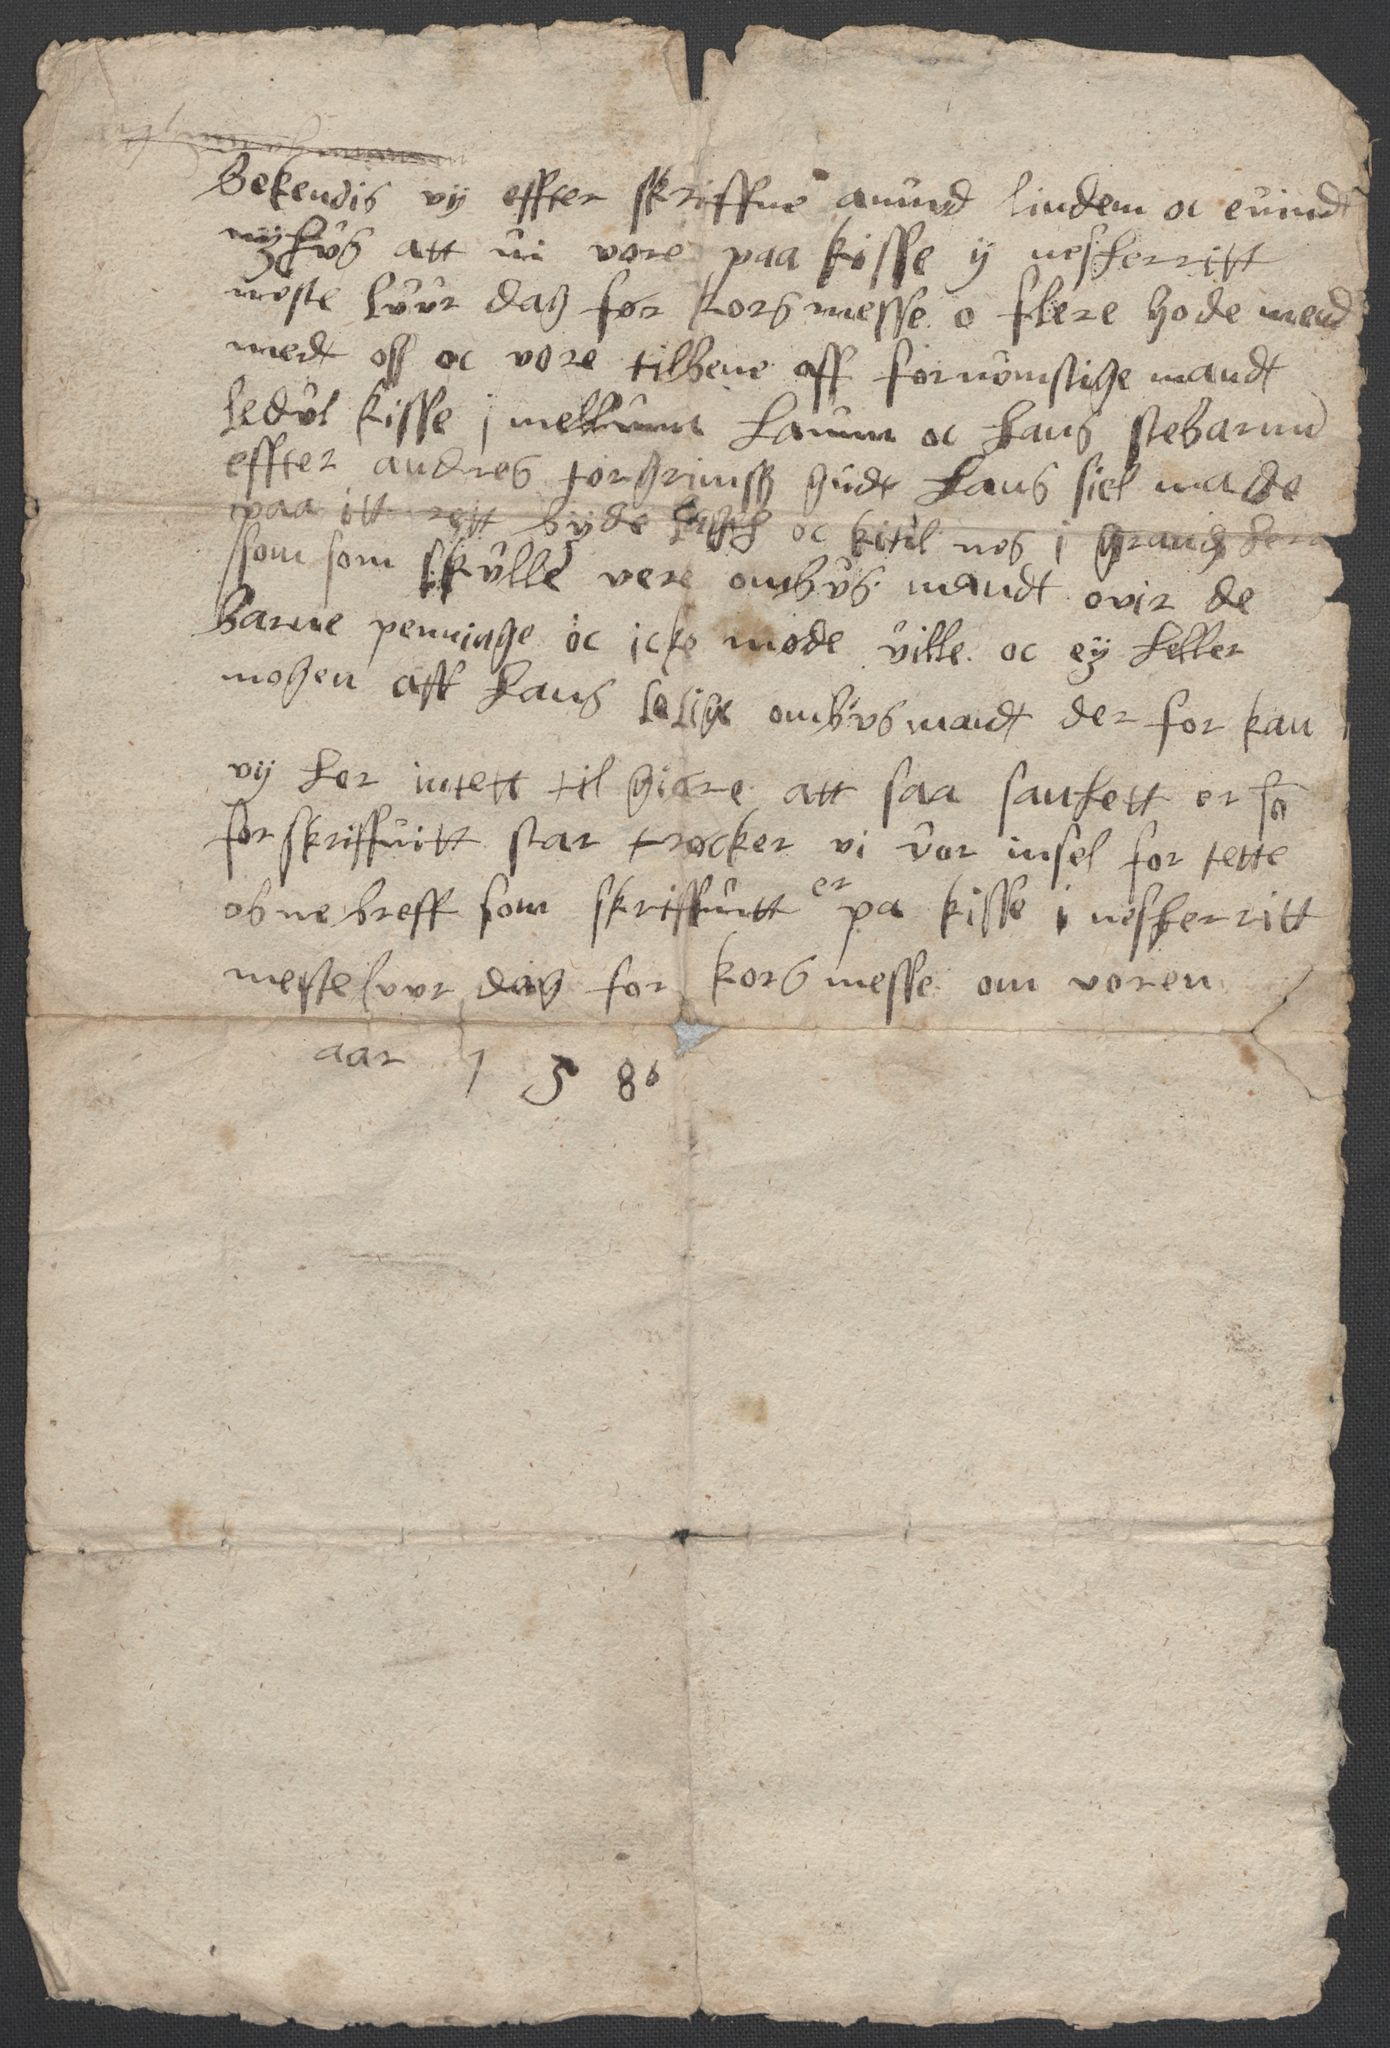 Bekendis vij effter skriffne amund lindem oc euindt
nyhus att vi vore paa kisse ij nesherritt
neste luur dag før korsmesse o flere gode mend
medt oss oc vore tilbene aff fornumstige mandt
ledul kisse i mellum hanum oc hans stebarnn
effter andres torgrimss gudt hans siel nade
paa itt rett byde oc kitil nes i
som som skulle vere ombus mandt ovir de
barne penninge oc icke møde ville oc ey heller
nogen aff hans lelige ombusmandt der for kan
vij her intett til giøre att saa sanhett er so
for skriffuitt star trøcker vi vor insel for tette
obne breff som skriffuitt er pa kisse i nesherritt
neste luur dag for kors messe om voren
aar 1 5 86